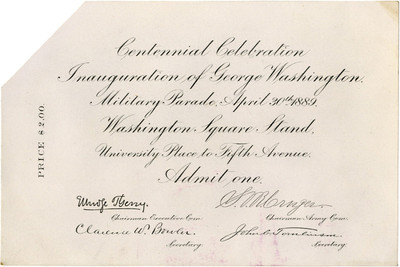 Centennial Celebration
Inauguration of George Washington.
Military Parade, April 30th 1889.
Washington Square Stand,
University Place to Fifth Avenue.
Admit one.
PRICE $2.00.
S. V. R. Cruger
Chairman Executive Com.
Chairman Army Com.
Clarence W. Bowen
John C. Tomlinson
Secretary.
Secretary.